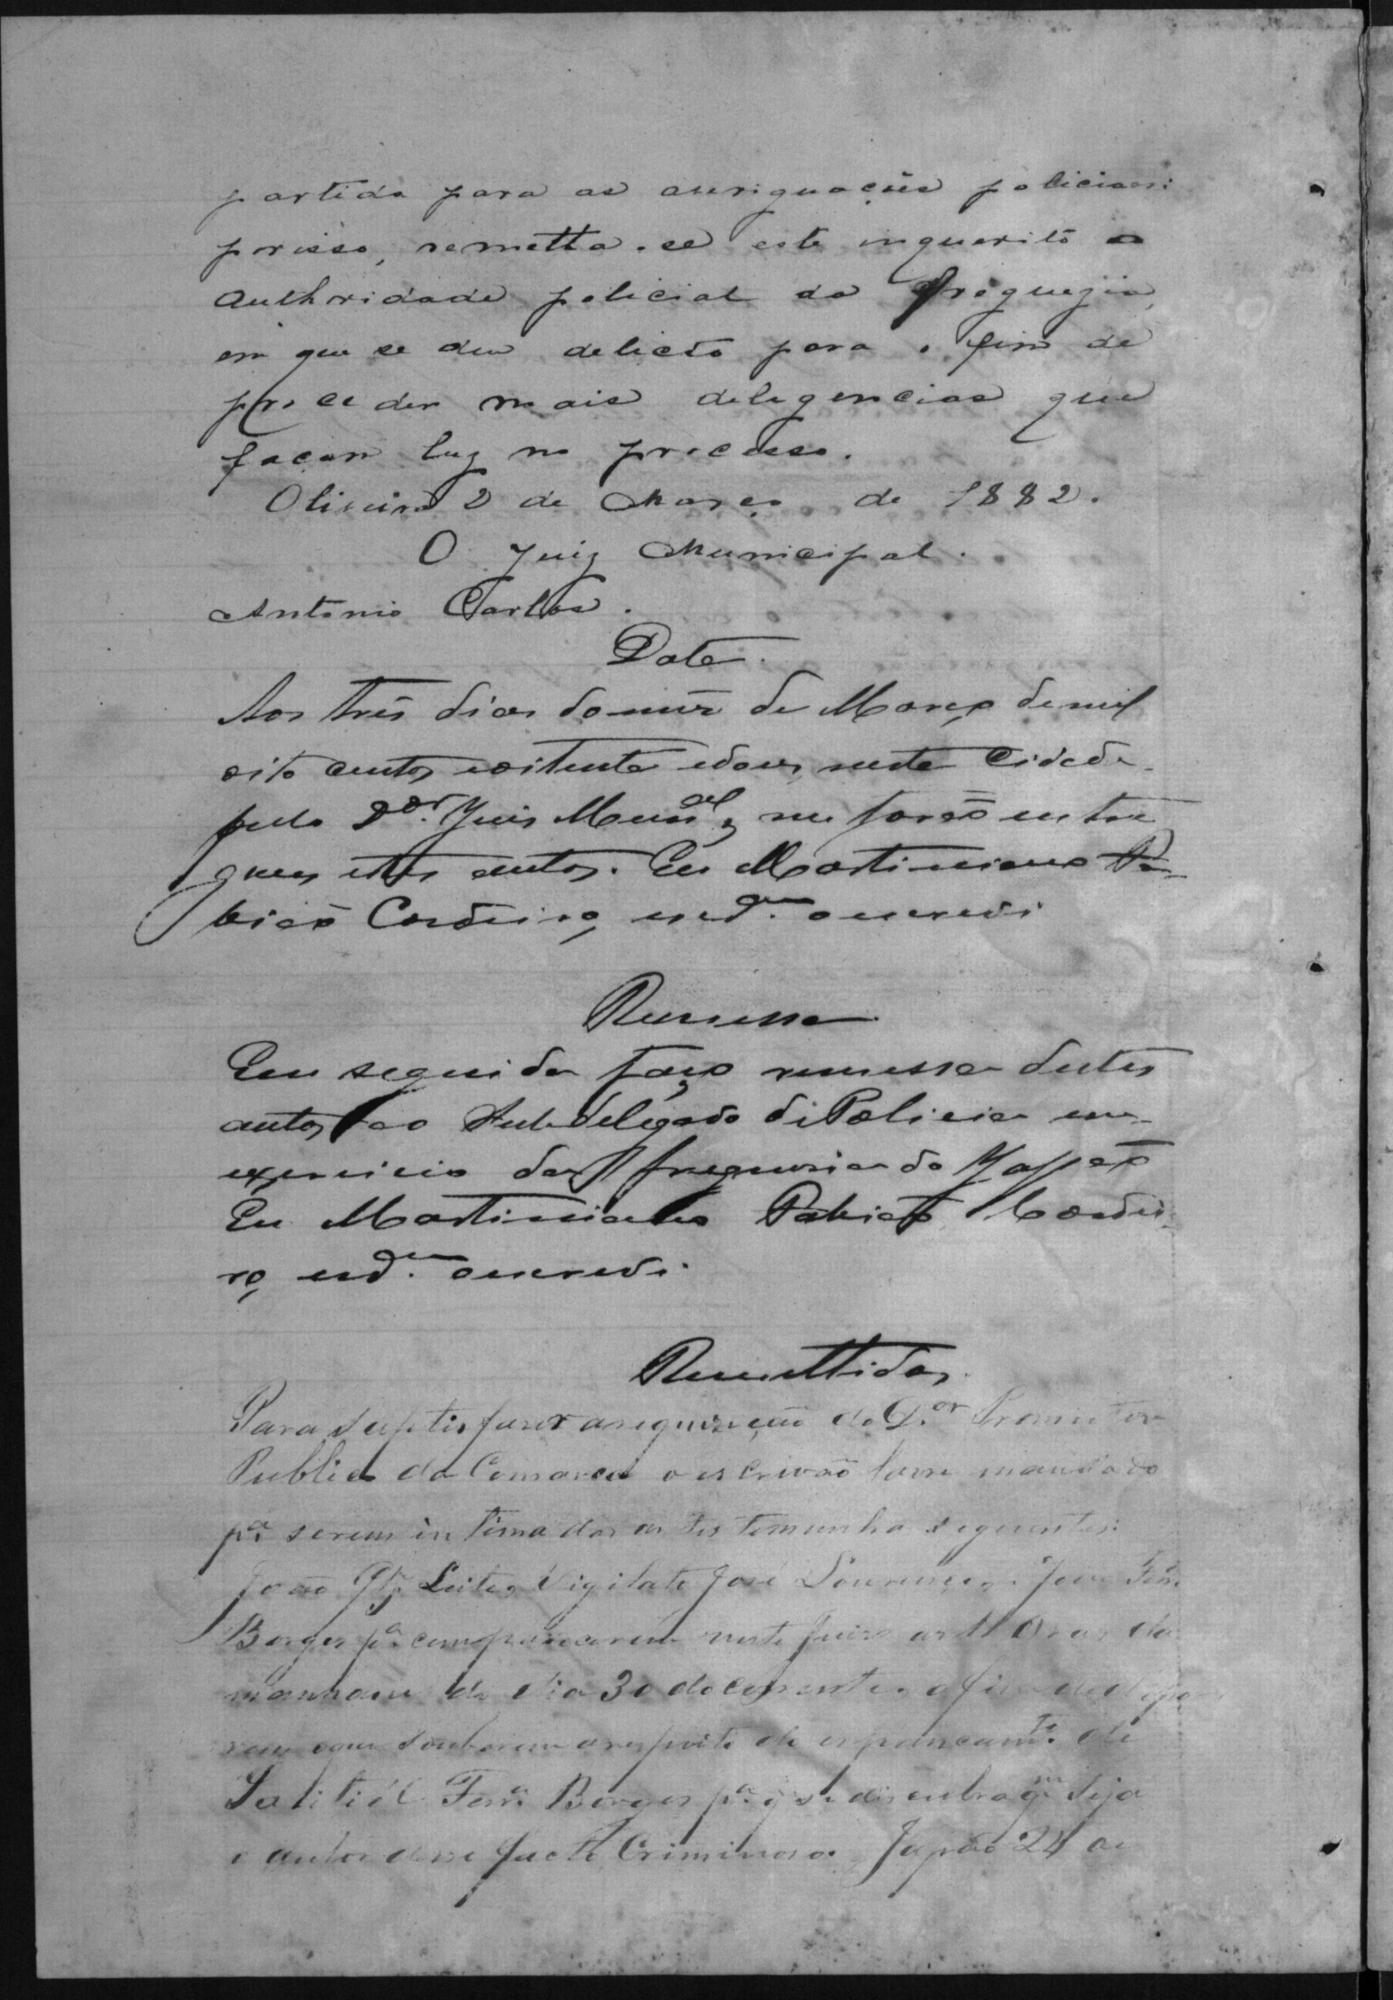 partida para as averiguações policiaes:
porisso, remetta-se este inquerito a
authoridade policial da freguezia,
em que se deu delicto para o fim de
proceder mais deligencias que
façam luz no processo.
Oliveira 2 de Março de 1882.
O Juiz Municipal.
Antonio Carlos.
Data.
Aos três dias do mez de Março de mil
oito centos e oitenta e dous, nesta Cidade
pelo Dor. Juis Munal, me forão entre
gues estes autos. Eu Martiniano
Cordeiro, escram. o escrevi
Remessa.
Em seguida faço remessa destes
autos ao Subdelegado de Policia em
exercicio da freguesia do Jappão
Eu Martiniano Cordei
ro, o escrevi.
Remettidos.
Para satisfaser a requisição do Dor. Promotor
Publico da Comarca o escrivão lavre mandado
pa. serem intimados as testemunha seguintes:
João Leite, Vigilato José Lourenço, José Ferra.
Borges pa. comparecerem neste Juiso as 11 Oras da
manhan do dia 30 do corrente, a fim de depo
rem o que souberem a respeito do espancamto. de
Salitiél Ferra. Borges pa. q se discubra qm. seja
o autor desse facto Criminoso. Japão 24 de